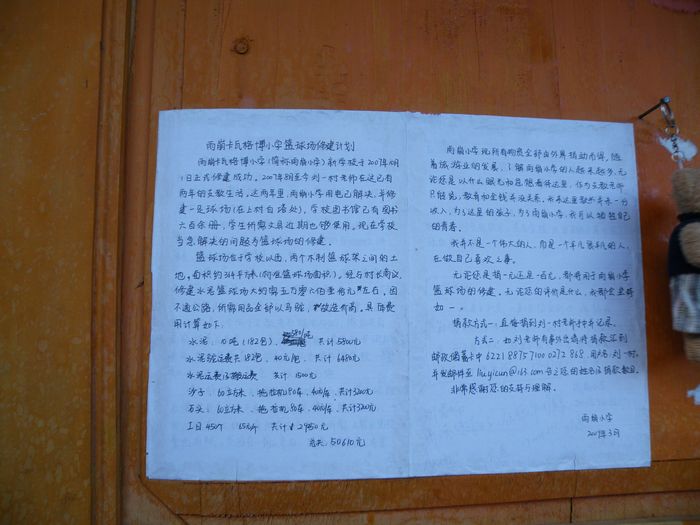 雨崩卡瓦格博小学篮球场修建计划
雨崩卡瓦格博小学(简称雨崩小学)新学校于2007年
1日正式修建成功。2007年 至今刘一村老师在这已有
两年的支教生活。这两年里,雨崩小学用电已解决,并修
建一足球场(在上村白塔处)。学校图书馆已有图书
六百余册,学生所需文具近期也够使用。现在学校
当急解决的问题为篮球场的修建。
篮球场位于学校以西,两个木制篮球架之间的土
地,面积约364平方米(标准篮球场面积)。经与村长商议,
修建水泥篮球场大约需五万零六百壹拾元左右。因
不通公路,所需用品全部以马驼,故造价高。具体费
用计算如下:
水泥: 10吨(182包), 580/吨 共计5800元
水泥 运费共182包, 40元/包 共计 元
水泥运费 搬运费 共计 1500元
沙子: 60立方米 拖拉机80车,40元/车,共计3200元
石头: 60立方米 拖拉机80车,40元/车,共计3200元
工日450个 65元/个 共计 元
总共:50610元
雨崩小学现所有物质全部由外界捐助而得,随
着旅游业的发展,了解雨崩小学的人越来越多,无
论您是以什么眼光和思想看待这里,作为支教老师
只能说,教育和金钱并没关系,我来这里教然并未一份
收入,为了这里的孩子,为了雨崩小学,我可以捡起自己
的青春。
我并不是一个伟大的人,而是一个平凡很平凡的人,
在做自己喜欢之事。
无论您是捐一元还是一百元,都将用于雨崩小学
篮球场的修建。无论您的评价是什么,我都会坚持
如一。
捐款方式一:直接捐到刘一村老师手中并记录。
方式二:如刘老师有事外出请将捐款汇到
邮政储蓄卡中6221 8875 7100 0272 868 用户名:刘一村,
并发邮件至 liuyicun@163.com 告之您的姓名及捐款数目。
非常感谢您的支持与理解。
雨崩小学
2009年3月